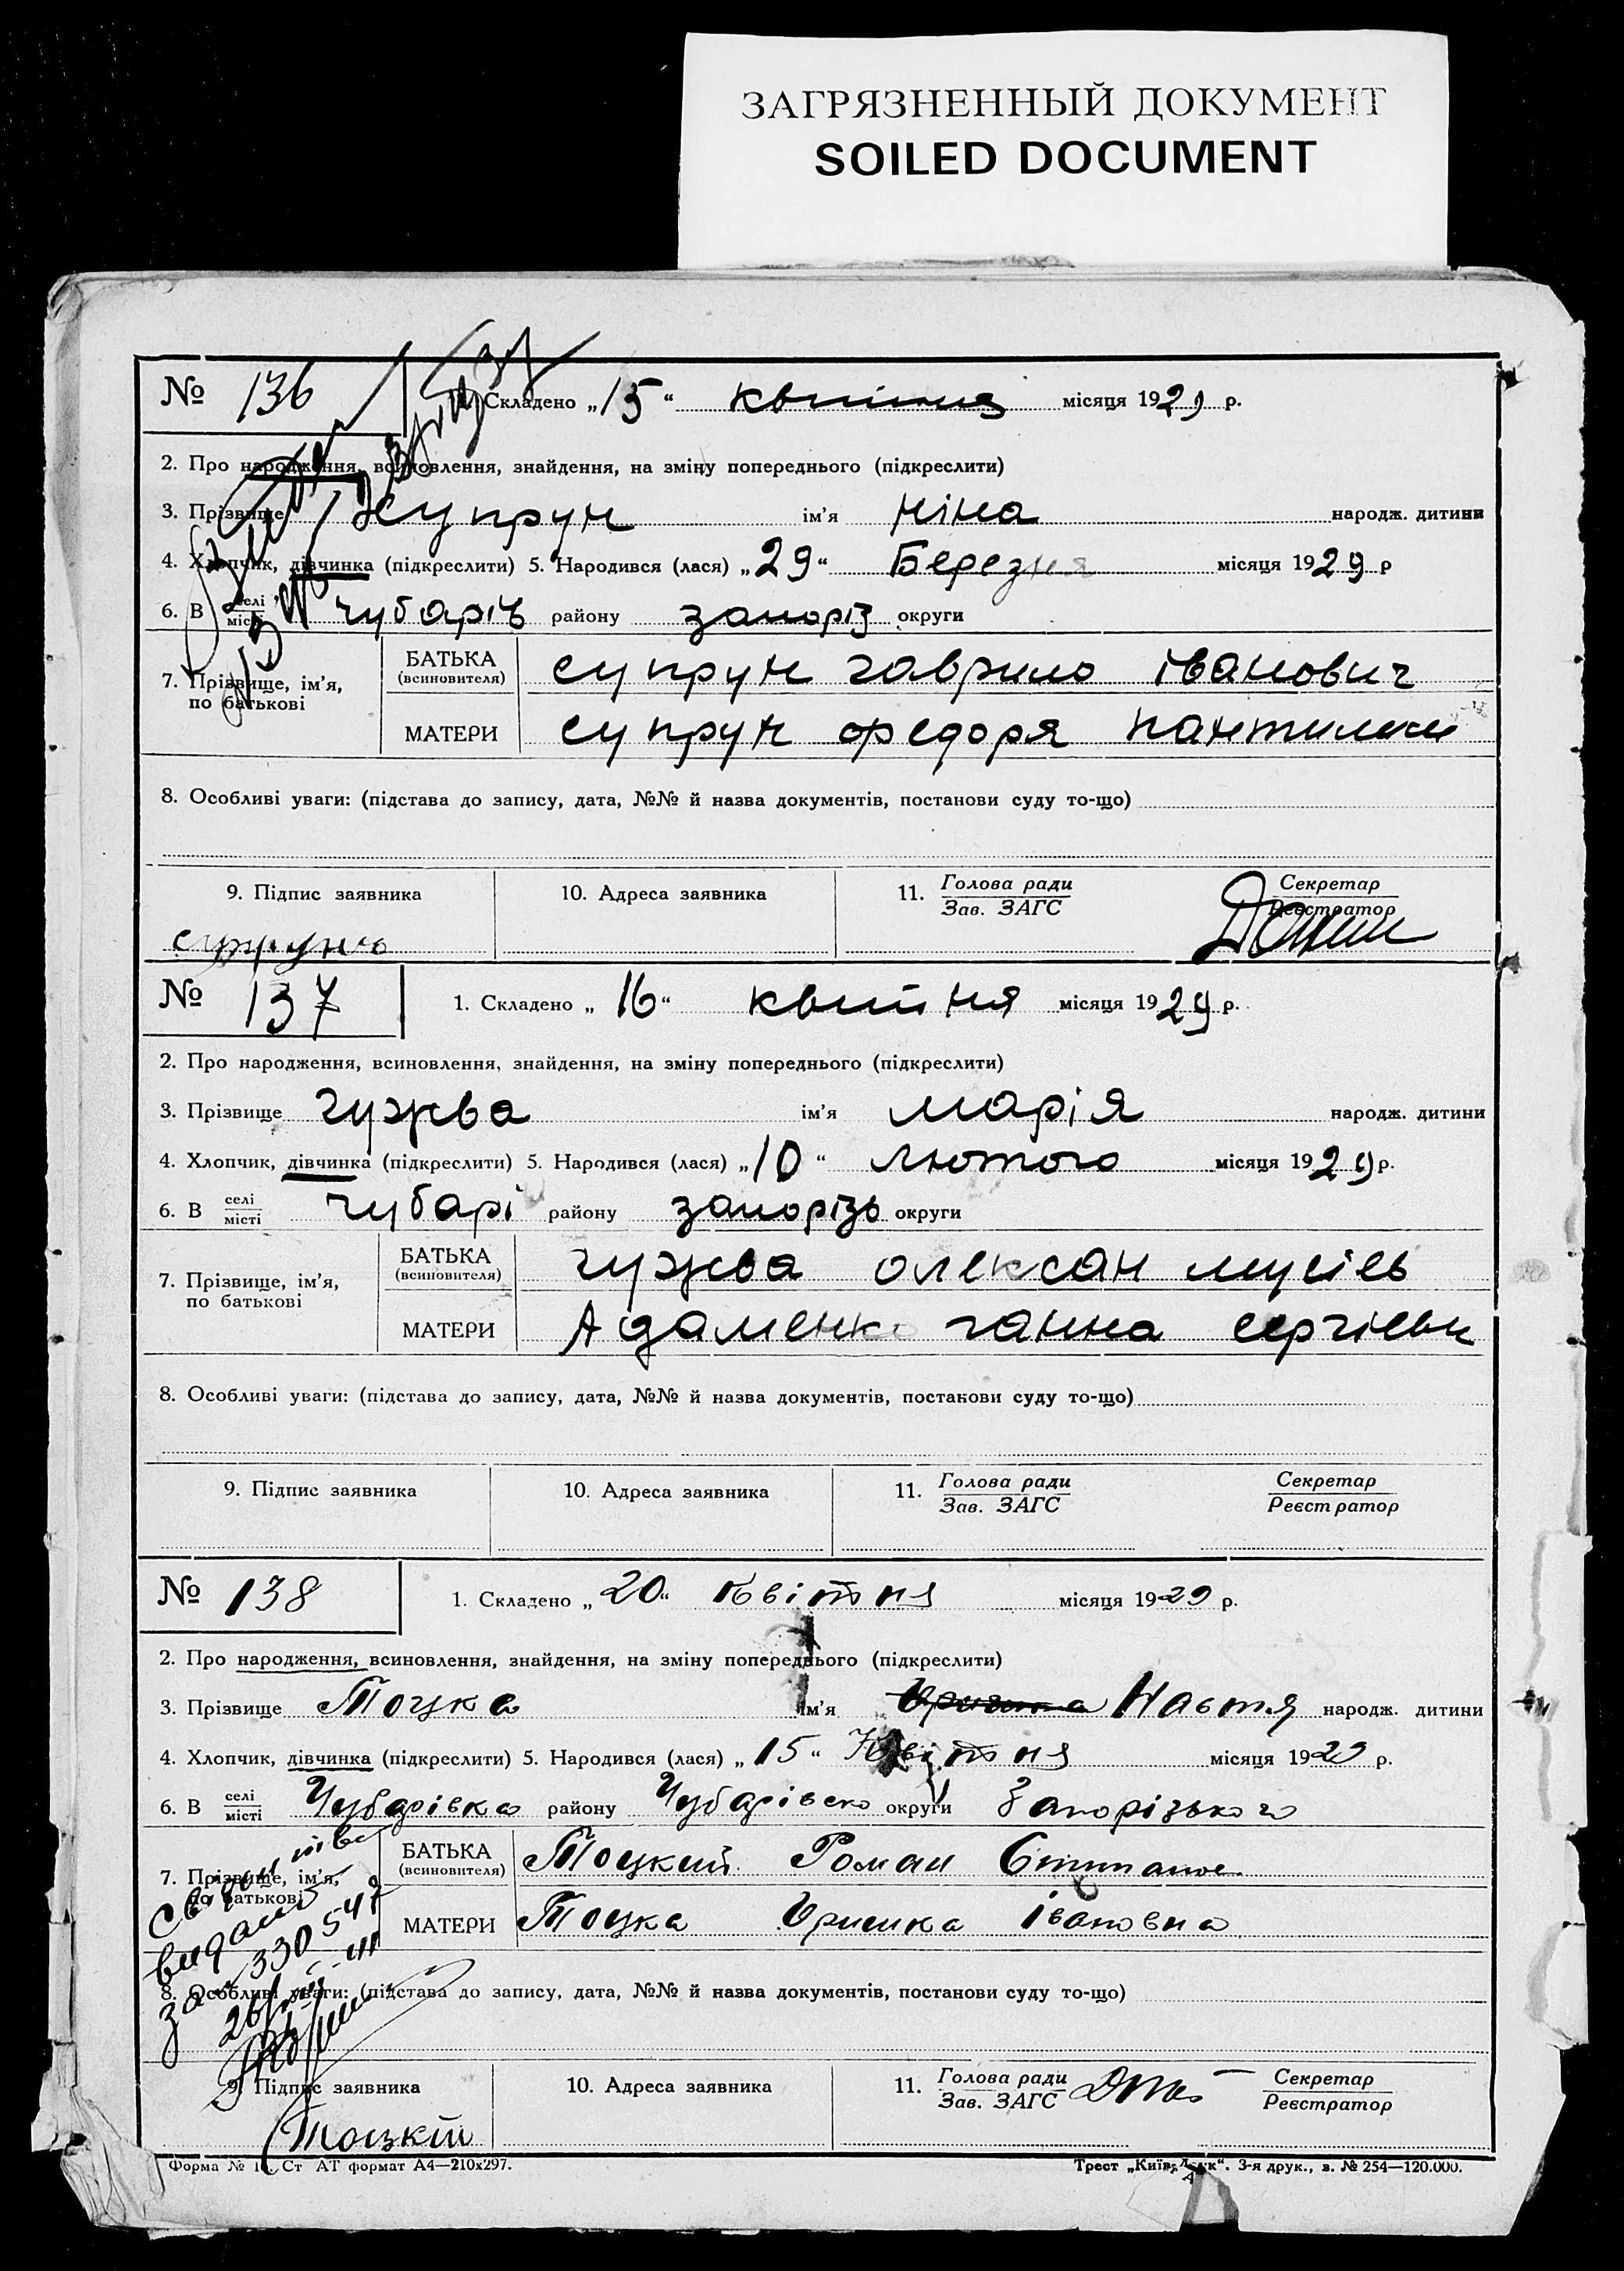 ЗАГРЯЗНЕННЫЙ ДОКУМЕНТ
SOILED DOCUMENT
№ 136
Складено „15“ квітня місяця 1929 р.
2. Про народження, всиновлення, знайдення, на зміну попереднього (підкреслити)
3. Прізвище Супрун ім'я Ніна народж. дитини
4. Хлопчик, дівчинка (підкреслити) 5. Народився (лася) „29“ Березня місяця 1929 р
6. В селі місті Чубарів району запоріз округи
7. Прізвище, ім'я, по батькові
БАТЬКА (всиновителя) супрун гаврило іванович
МАТЕРИ супрун федоря
8. Особливі уваги: (підстава до запису, дата, №№ й назва документів, постанови суду то-що)
9. Підпис заявника 10. Адреса заявника 11. Голова ради Зав. ЗАГС Секретар Реєстратор
№ 137
1. Складено „16“ квітня місяця 1929 р.
2. Про народження, всиновлення, знайдення, на зміну попереднього (підкреслити)
3. Прізвище гужва ім'я марія народж. дитини
4. Хлопчик, дівчинка (підкреслити) 5. Народився (лася) „10“ лютого місяця 1929 р.
6. В селі місті чубарі району запорізь округи
7. Прізвище, ім'я, по батькові
БАТЬКА (всиновителя) гужва олександ мусієв
МАТЕРИ Адаменко ганна сергієвн
8. Особливі уваги: (підстава до запису, дата, №№ й назва документів, постанови суду то-що)
9. Підпис заявника 10. Адреса заявника 11. Голова ради Зав. ЗАГС Секретар Реєстратор
№ 138
1. Складено „20“ Квітня місяця 1929 р.
2. Про народження, всиновлення, знайдення, на зміну попереднього (підкреслити)
3. Прізвище Тоцка ім'я Настя народж. дитини
4. Хлопчик, дівчинка (підкреслити) 5. Народився (лася) „15“ Квітня місяця 1929 р.
6. В селі місті Чубарівка району Чубарівско округи Запорізького
7. Прізвище, ім'я, по батькові
БАТЬКА (всиновителя) Тоцкий Роман
МАТЕРИ Тоцка Оришка Івановна
видано
за № 330547
8. Особливі уваги: (підстава до запису, дата, №№ й назва документів, постанови суду то-що)
9. Підпис заявника 10. Адреса заявника 11. Голова ради Зав. ЗАГС Секретар Реєстратор
Тоцкій
Форма № Ст АТ формат А4—210х297. Трест „Київ-Друк“. 3-я друк., в. № 254—120.000.